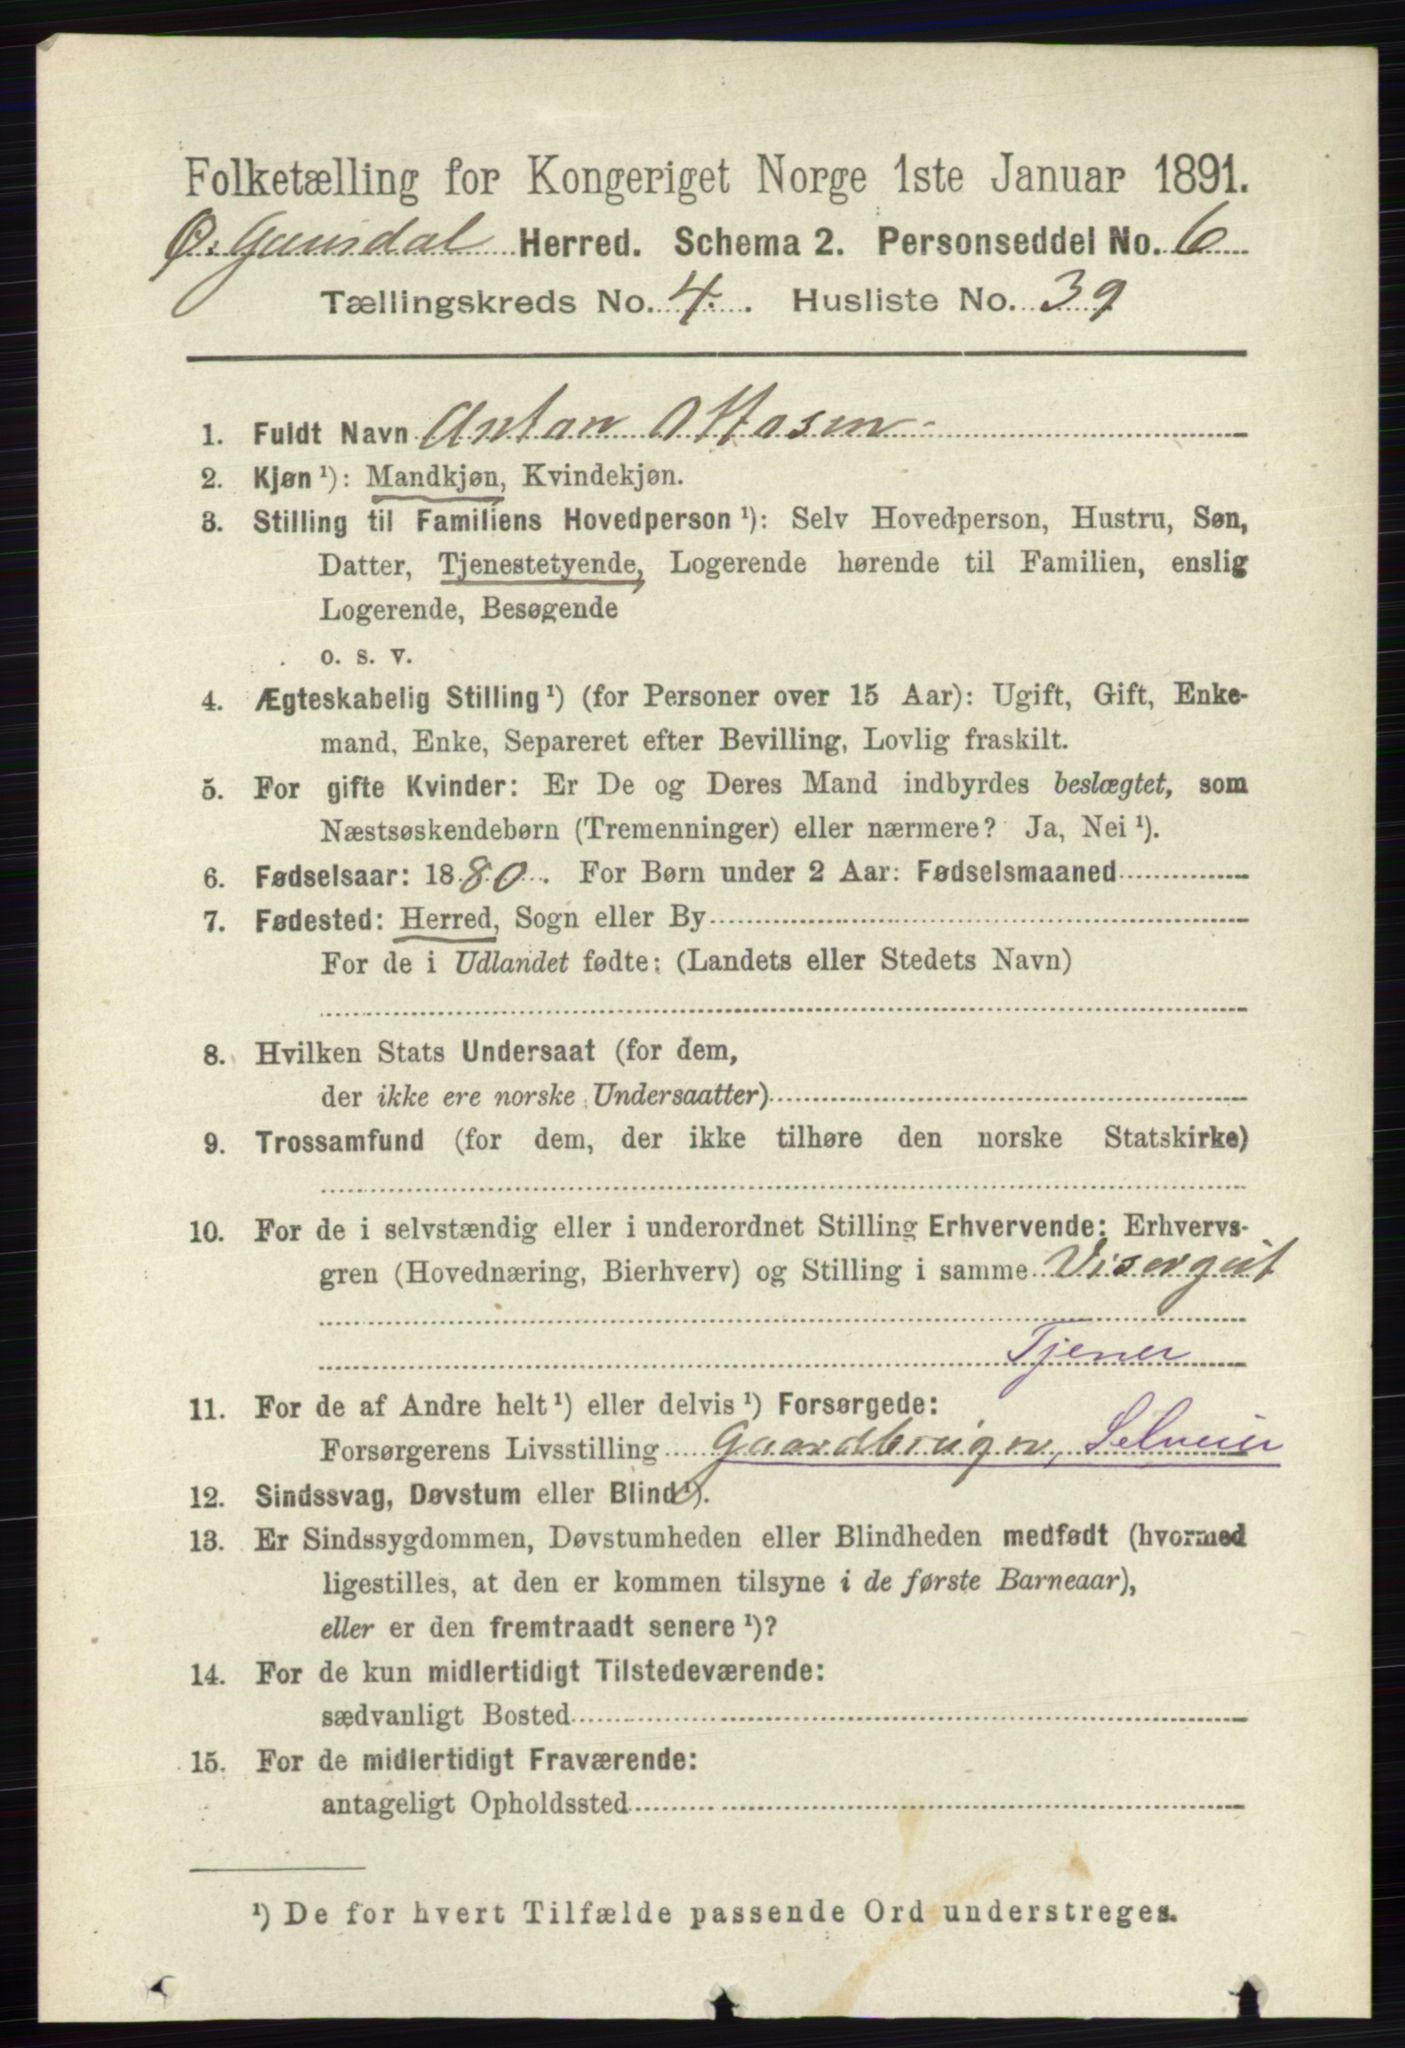 Folketælling for Kongeriget Norge 1ste Januar 1891.
Ø. Gausdal Herred. Schema 2. Personseddel No. 6
Tællingskreds No. 4. Husliste No. 39
1. Fuldt Navn Anton Ottosen
2. Kjøn ¹): Mandkjøn, Kvindekjøn.
3. Stilling til Familiens Hovedperson ¹): Selv Hovedperson, Hustru, Søn,
Datter, Tjenestetyende, Logerende hørende til Familien, enslig
Logerende, Besøgende
o. s. v.
4. Ægteskabelig Stilling ¹) (for Personer over 15 Aar): Ugift, Gift, Enke-
mand, Enke, Separeret efter Bevilling, Lovlig fraskilt.
5. For gifte Kvinder: Er De og Deres Mand indbyrdes beslægtet, som
Næstsøskendebørn (Tremenninger) eller nærmere? Ja, Nei ¹).
6. Fødselsaar: 1880. For Børn under 2 Aar: Fødselsmaaned
7. Fødested: Herred, Sogn eller By
For de i Udlandet fødte: (Landets eller Stedets Navn)
8. Hvilken Stats Undersaat (for dem,
der ikke ere norske Undersaatter)
9. Trossamfund (for dem, der ikke tilhøre den norske Statskirke)
10. For de i selvstændig eller i underordnet Stilling Erhvervende: Erhvervs-
gren (Hovednæring, Bierhverv) og Stilling i samme Visergut
Tjener
11. For de af Andre helt ¹) eller delvis ¹) Forsørgede:
Forsørgerens Livsstilling Gaardbruger, Selveier
12. Sindssvag, Døvstum eller Blind ¹).
13. Er Sindssygdommen, Døvstumheden eller Blindheden medfødt (hvormed
ligestilles, at den er kommen tilsyne i de første Barneaar),
eller er den fremtraadt senere ¹)?
14. For de kun midlertidigt Tilstedeværende:
sædvanligt Bosted
15. For de midlertidigt Fraværende:
antageligt Opholdssted
¹) De for hvert Tilfælde passende Ord understreges.